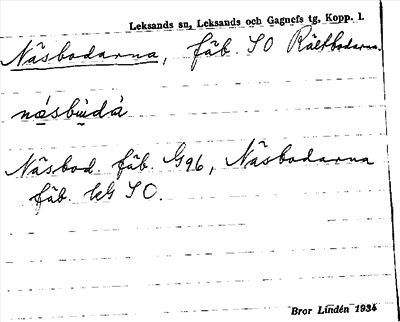 Leksands sn, Leksands och Gagnefs tg, Kopp. l.
Näsbodarna, fäb. SO Rältbodarna.
näsbùdà
Näsbod. fäb. G96, Näsbodarna
fäb. LG SO.
Bror Lindén 1934